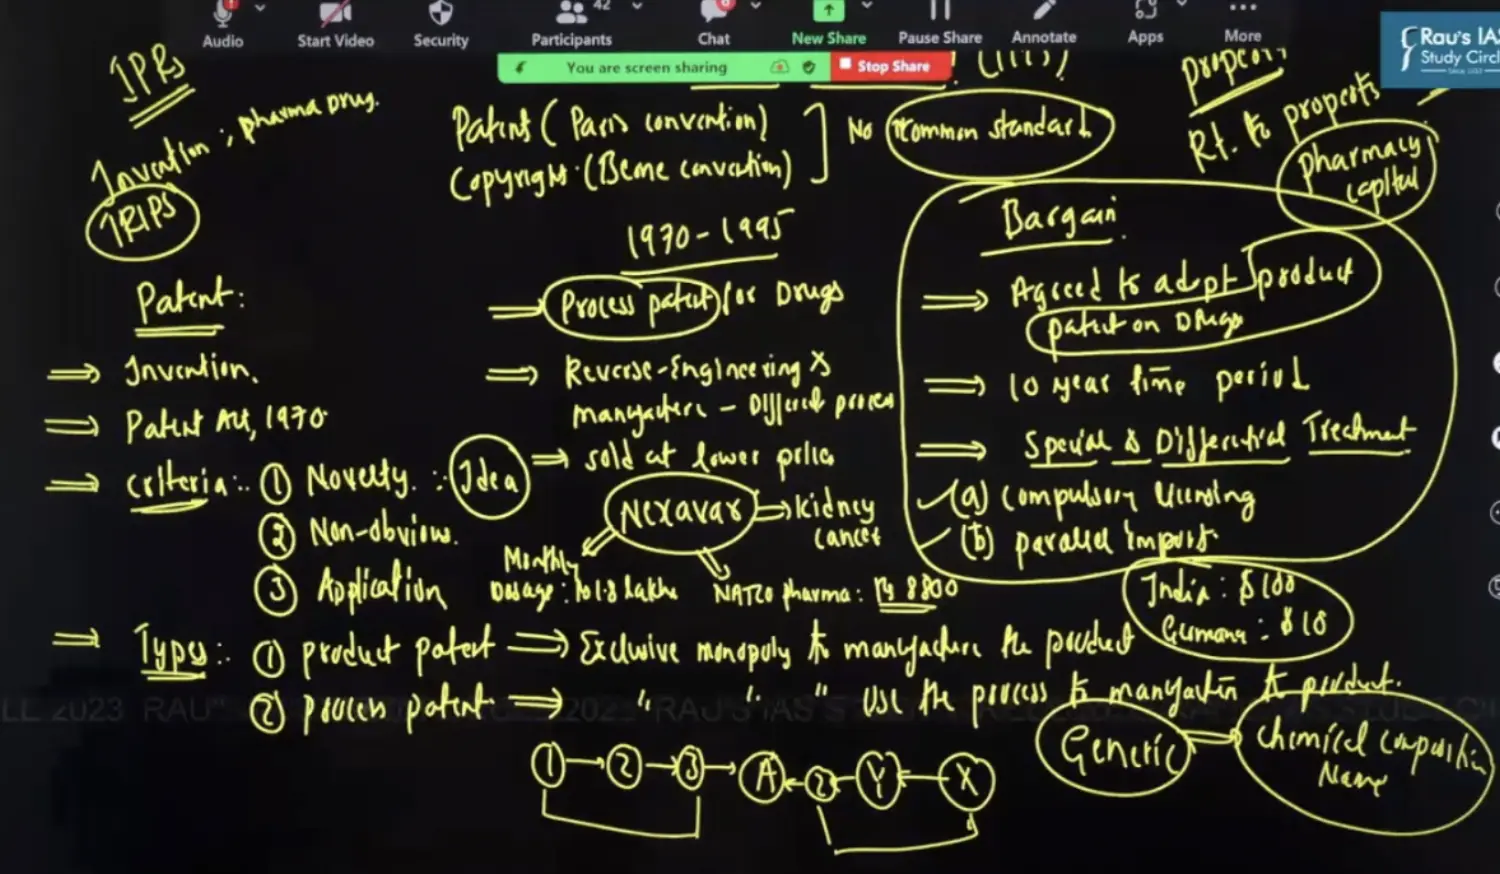 Audio
Start Video
Security
42
Participants
Chat
New Share
Pause Share
Annotate
Apps
More
Rau's IAS
Study Circl
You are screen sharing
Stop Share
IPRs
Invention ; pharma drug.
TRIPS
Patent (Paris convention)
Copyright (Berne convention)
No common standard
Rt. to property
pharmacy
capital
1970-1995
Process patent for Drugs
Reverse-Engineering &
manufacture - Different process
sold at lower price
Nexavar
kidney
cancer
Monthly
Dosage:
lakhs
NATCO pharma: Rs 8800
Bargain
Agreed to adopt product
patent on Drugs
10 year time period
Special & Differential Treatment
(a) compulsory licensing
(b) parallel import.
India: $100
$10
Patent:
Invention.
Patent Act, 1970
criteria:. ① Novelty. : Idea
② Non-obvious.
③ Application
Types:. ① product patent Exclusive monopoly to manufacture the product
② process patent " " " use the process to manufacture product.
1 2 3 A 2 Y X
Generic
chemical composition
Name
LE 2023 RAU'S
RAU'S IAS